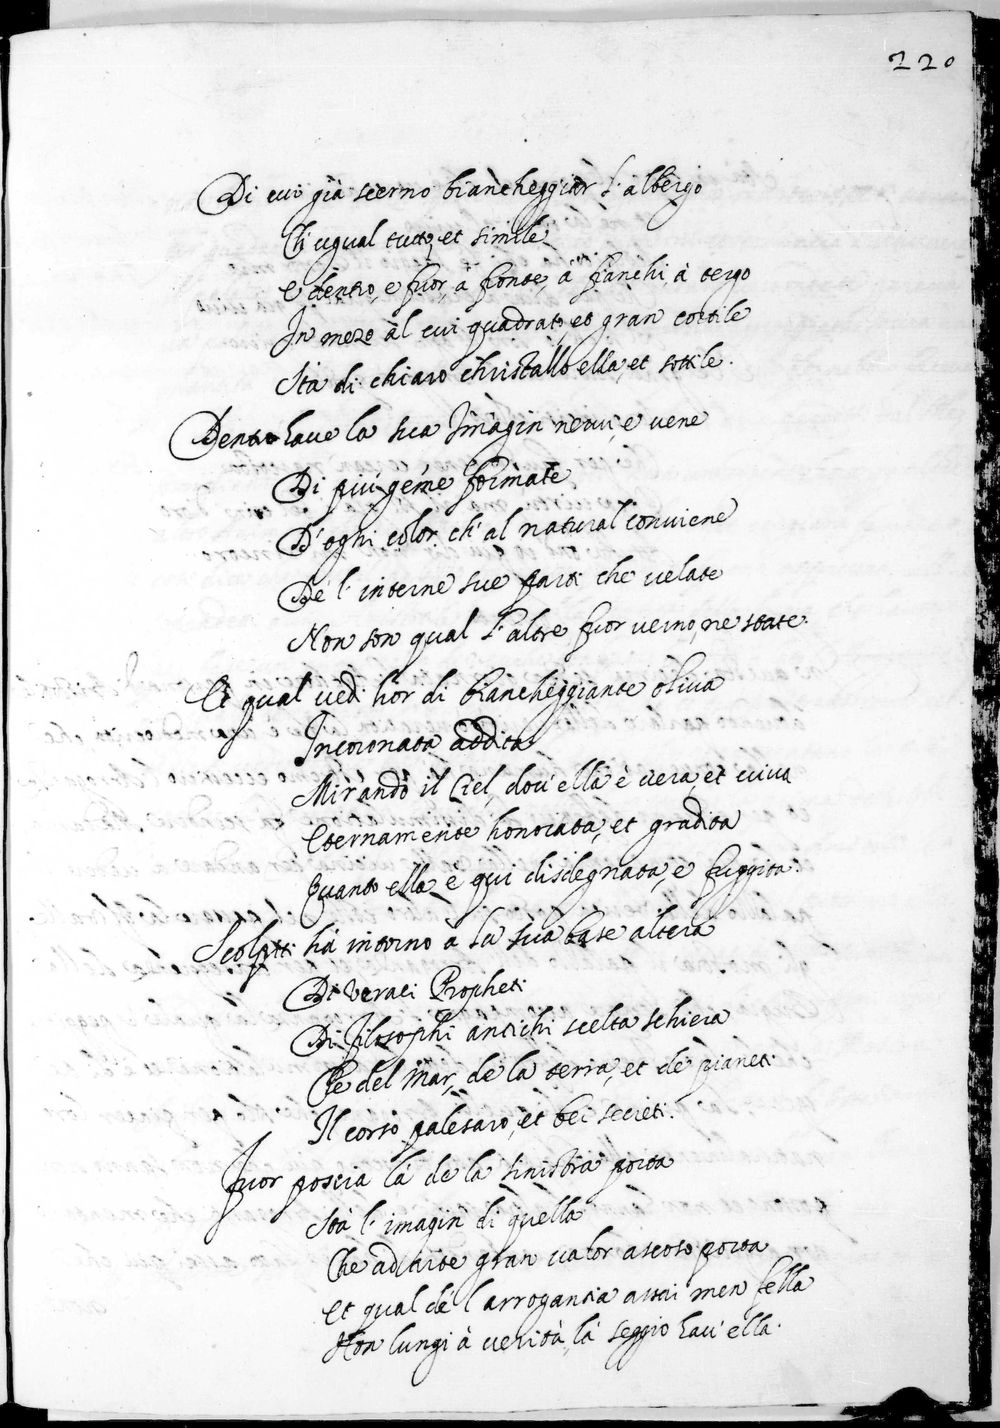 220
Di cui già scerno biancheggiar l'albergo
Ch'ugual tutto, et simile
E dentro, e fuor, à fronte, à fianchi, à tergo
In mezo àl cui quadrato, et gran cortile
Stà di chiaro christallo ella, et sottile.
Dentro have la sua Imagin nervi, e vene
Di più géme formate
D'ogni color, ch'al natural conviene
Dè l'interne sue parti che velate
Non son qual l'altre fuor verno, ne state.
Et qual vedi hor di biancheggiante oliva
Incoronata addita
Mirando il Ciel, dov'ella è vera, et viva
Eternamente honorata, et gradita
Quanto ella è qui disdegnata, e fuggita.
Scolpiti hà intorno a la sua base altera
Di veraci Propheti
Di filosophi antichi scelta schiera
Che del mar, de la terra, et dè pianeti
Il corso palesaro, et bei secreti.
Fuor poscia là de la sinistra porta
Stà l'imagin di quella
Che ad hite gran valor ascoso porta
Et qual dè l'arrogantia assai men fella
Non lungi à verità, là seggio hav'ella.